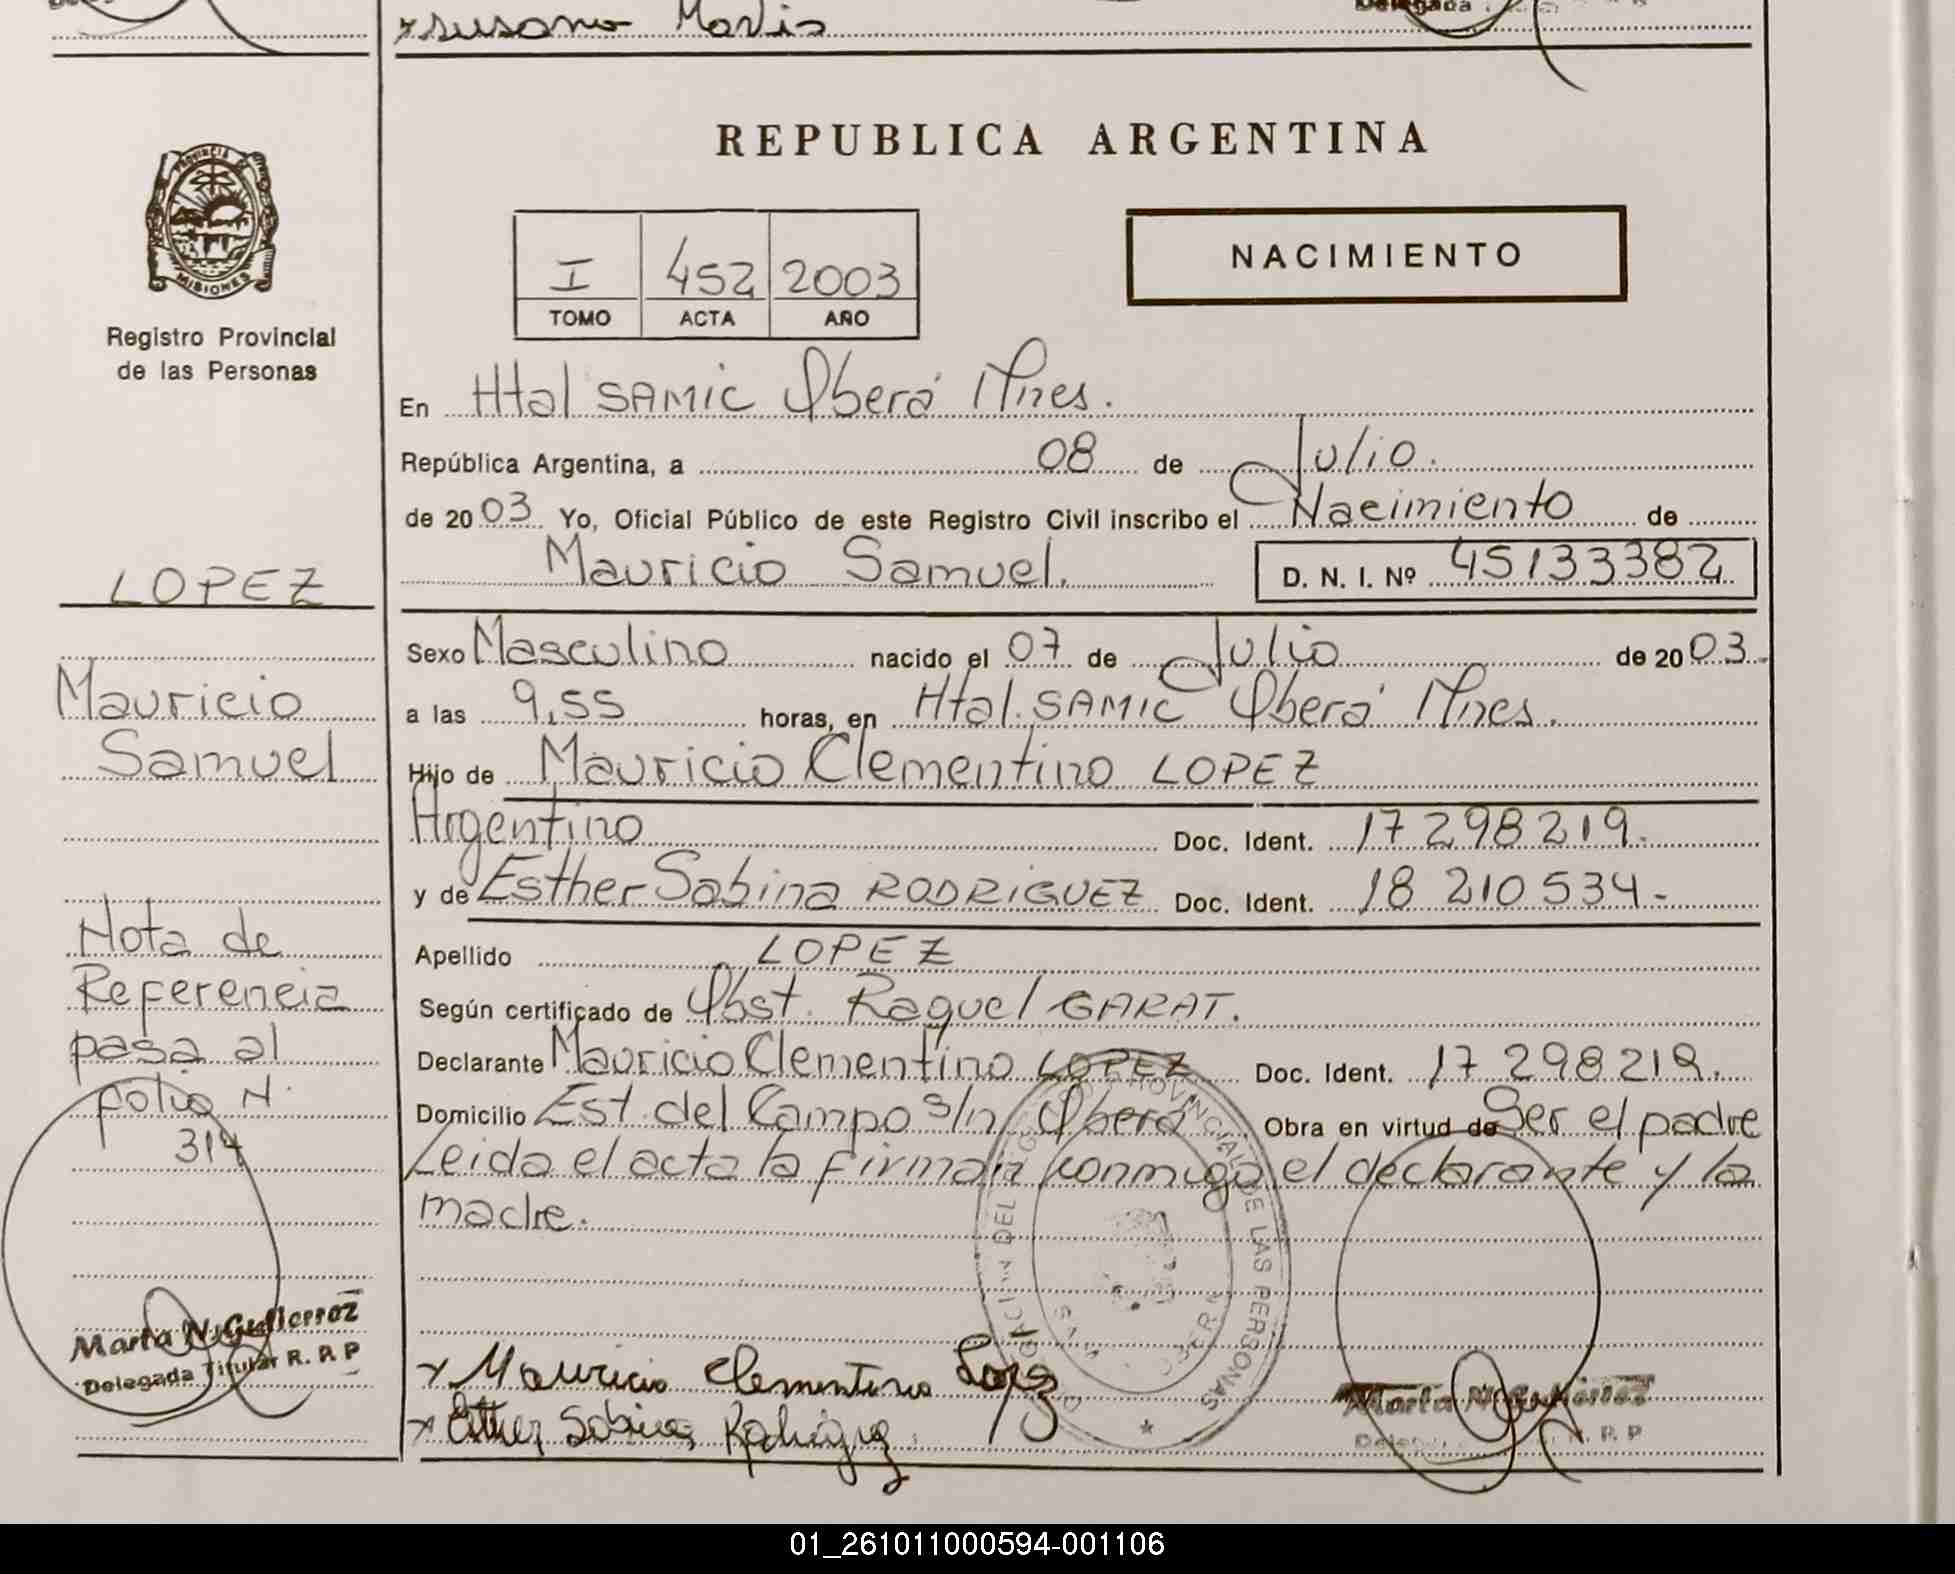 Susana Maris
Delegada
REPUBLICA ARGENTINA
PROVINCIA DE
MISIONES
Registro Provincial
de las Personas
I 452 2003
TOMO ACTA AÑO
NACIMIENTO
En Htal SAMIC Oberá Mnes.
República Argentina, a 08 de Julio.
de 2003 Yo, Oficial Público de este Registro Civil inscribo el Nacimiento de
Mauricio Samuel. D. N. I. Nº 45133382
LOPEZ
Mauricio
Samuel
Sexo Masculino nacido el 07 de Julio de 2003.
a las 9,55 horas, en Htal. SAMIC Oberá Mnes.
Hijo de Mauricio Clementino LOPEZ
Argentino Doc. Ident. 17 298 219.
y de Esther Sabina RODRIGUEZ Doc. Ident. 18 210 534.-
Apellido LOPEZ
Según certificado de Obst. Raquel GARAT.
Declarante Mauricio Clementino LOPEZ Doc. Ident. 17 298 219.
Domicilio Est. del Campo s/n Oberá Obra en virtud de Ser el padre
Leida el acta la firman conmigo el declarante y la
madre.
Nota de
Referencia
pasa al
folio N.
314
Marta N. Gutierrez
Delegada Titular R. P. P
DEL PROVINCIAL DE LAS PERSONAS
x Mauricio Clementino Lopez
x Esther Sabina Rodriguez
Marta N. Gutierrez
R. P. P
01_261011000594-001106